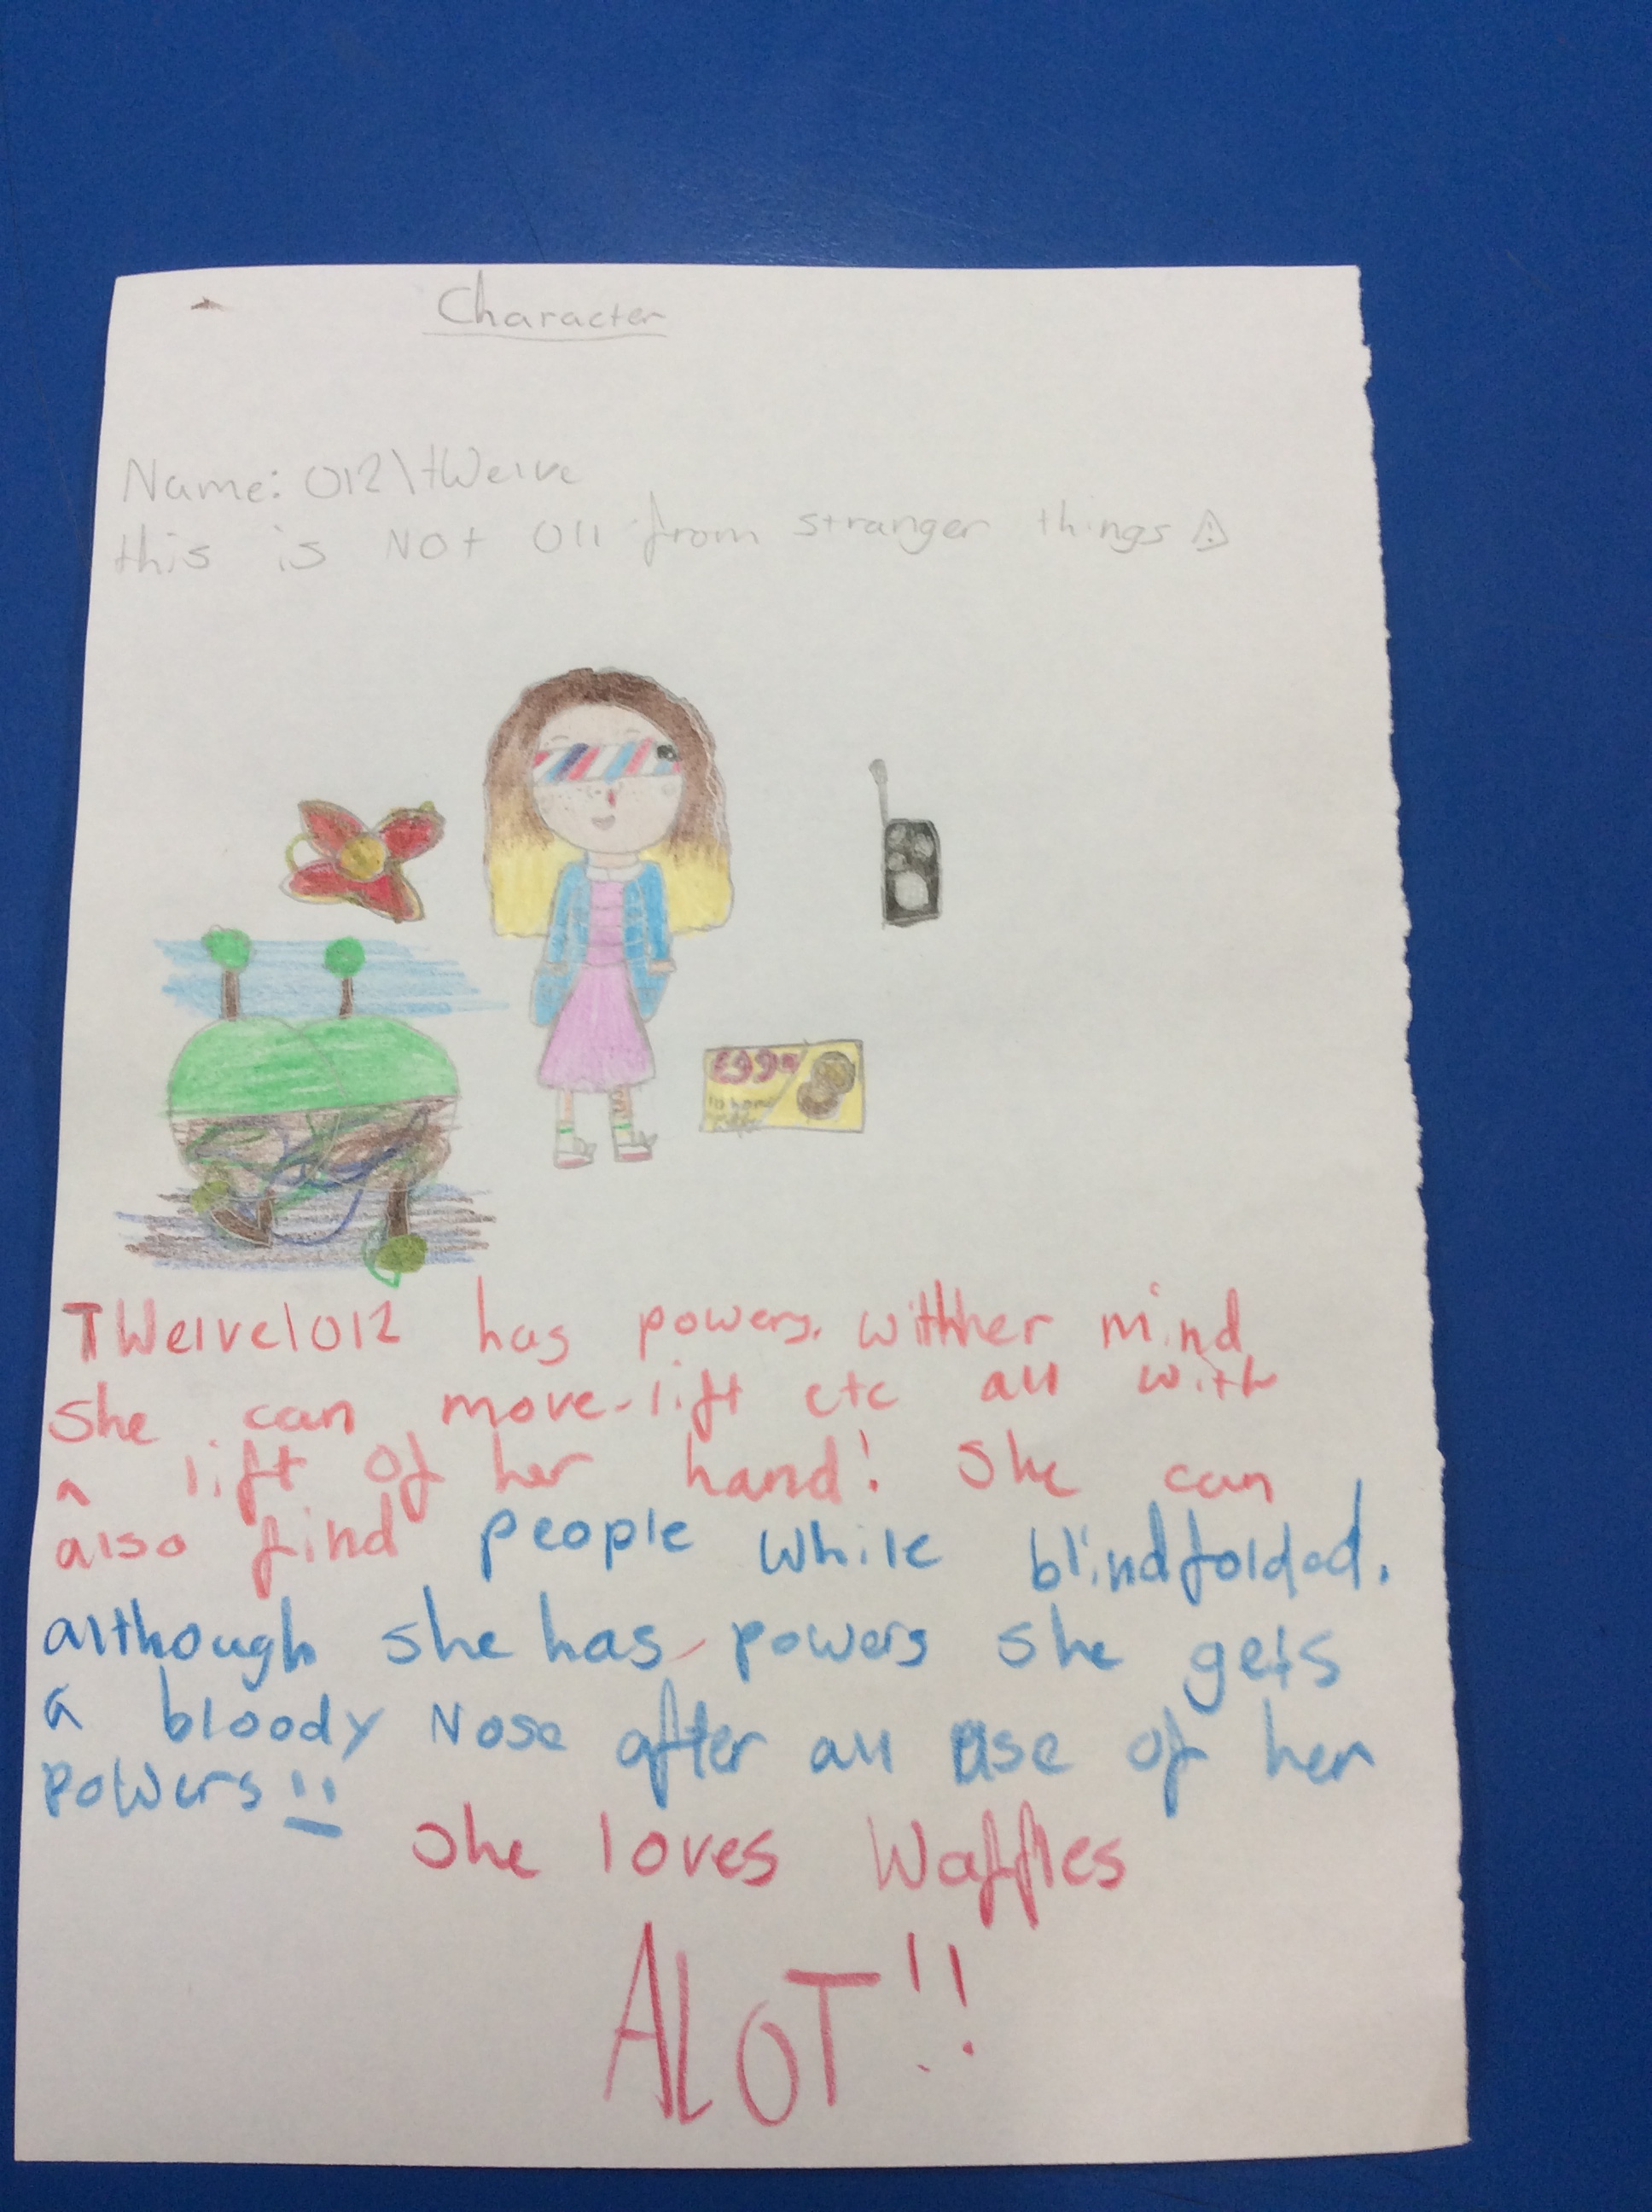 Character
Name: 012\tWelve
this is NOt 011 from stranger things
E99O
TWelve|012 has powers. withher mind
She can move-lift etc all with
a lift of her hand! She can
also find people while blindfolded.
although she has powers she gets
a bloody Nose after all use of her
powers!!
She loves Waffles
ALOT!!